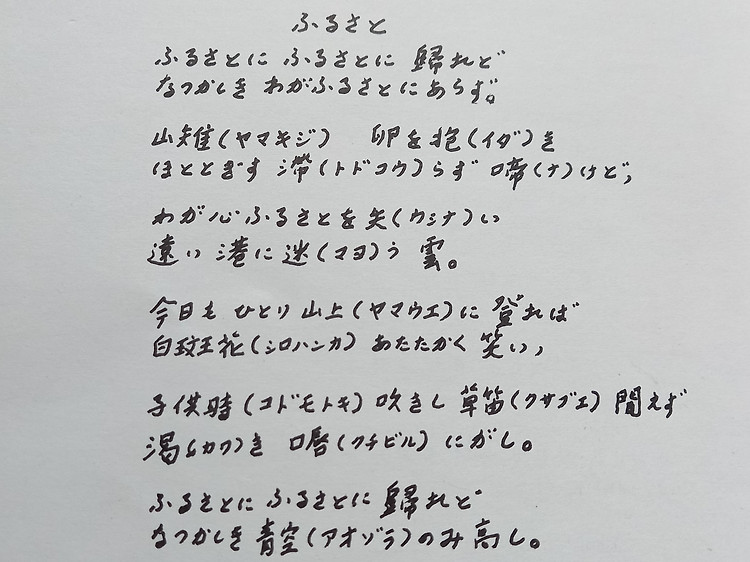 ふるさと
ふるさとに ふるさとに 歸れど
なつかしき わがふるさとにあらず。
山雉(ヤマキジ) 卵を抱(イダ)き
ほととぎす 滯(トドコウ)らず 啼(ナ)けど,
わが心ふるさとを矢(ウシナ)い
遠い 港に 迷(マヨ)う 雲。
今日も ひとり 山上(ヤマウエ)に 登れば
白斑花(シロハンカ) あたたかく 笑い,
子供時(コドモトキ) 吹きし 草笛(クサブエ) 聞えず
渇(カワ)き 口唇(クチビル) にがし。
ふるさとに ふるさとに 歸れど
なつかしき 青空(アオゾラ)のみ 高し。